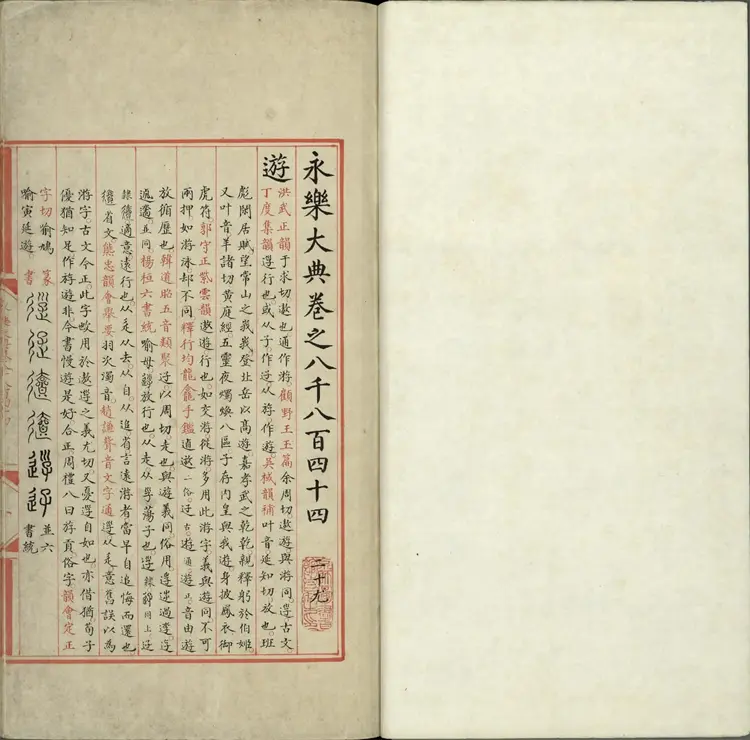 永樂大典卷之八千八百四十四 二十九
遊
洪武正韻于求切遨也通作游顧野王玉篇余周切遨遊與游同逕古文
丁度集韻逕行也或从子作迃从斿作遊吳棫韻補叶音延知切放也班
彪閑居賦望常山之峩峩登北岳以高遊嘉孝武之乾乾親釋躬於伯姬
又叶音羊諸切黄庭經五靈夜燭煥八區子存内皇與我遊身披鳳衣御
虎符郭守正紫雲韻遨遊行也如交游從游多用此游字義與遊同不可
兩押如游泳却不同釋行均龍龕手鑑
放俯歷也韓道昭五音類聚迃以周切走也與遊義同俗用
並同楊桓六書統喻母繇放行也从走从㝁蕩子也
適意遠行也从辵从去从自从追省言遠游者當早自追悔而還也
省文熊忠韻會舉要羽次濁音趙謙聲音文字通逕从辵意舊誤以為
游字古文今正此字峧用於遨逕之義尤切又憂逕自如也亦借猶荀子
優猶知足作斿遊非今書慢遊是好合正周禮八曰斿貢俗字韻會定正
字切喻鳩
喻寅延遊
篆
書
並六
書統